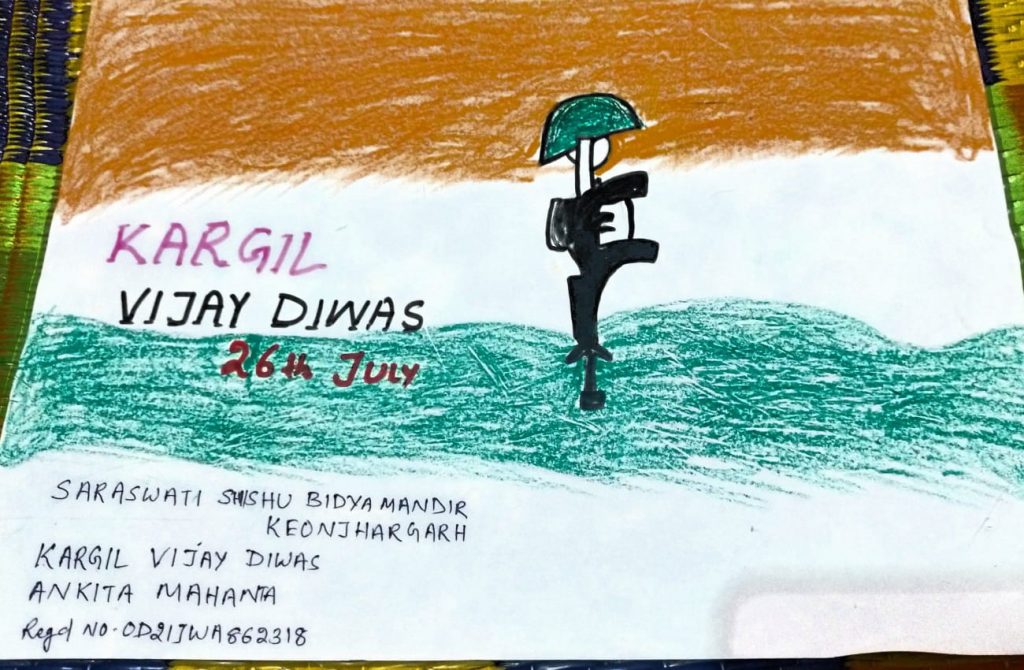 KARGIL
VIJAY DIWAS
26th JULY
SARASWATI SHISHU BIDYA MANDIR
KEONJHARGARH
KARGIL VIJAY DIWAS
ANKITA MAHANTA
Regd NO-OD21JWA862318